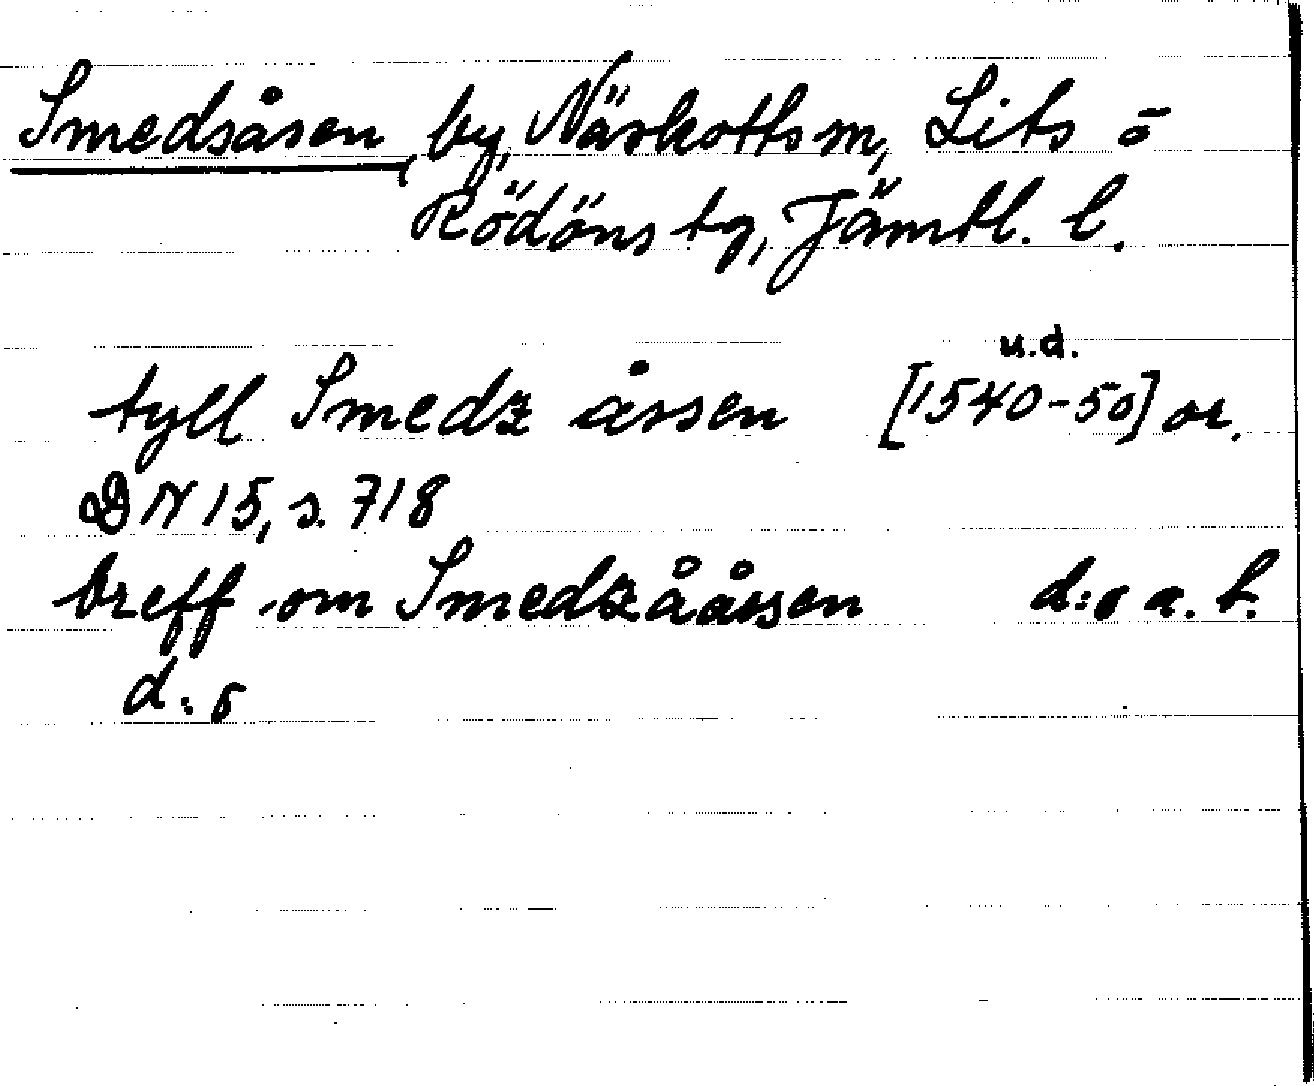 Smedsåsen, by, Näskotts sn, Lits o
Rödöns tg, Jämtl. l.
u.d.
tyll Smedz åssen [1540-50] or.
DN 15, s. 718
breff om Smedzååssen d:o a. t.
d:o